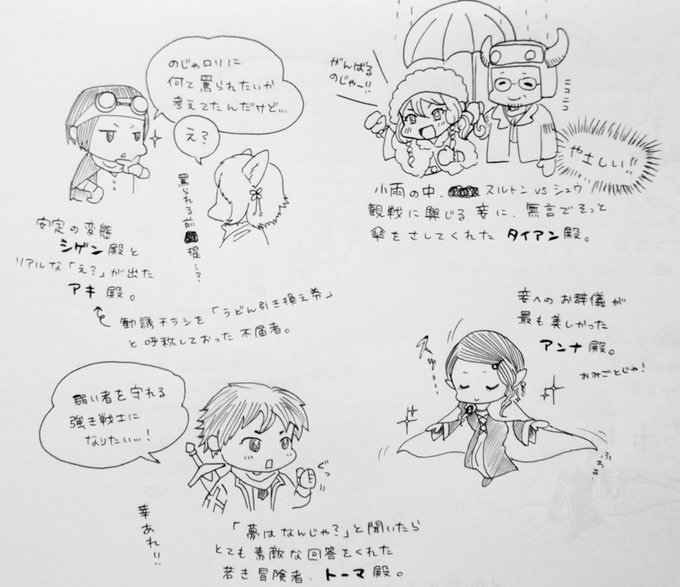 のじゃロリに
何て罵られたいか
考えてたんだけど…
え?
罵られる前提…?
安定の変態
シゲン殿と
リアルな「え?」が出た
アキ殿。
勧誘チラシを「うどん引き換え券」
と呼称しておった不届者。
がんばる
のじゃー!!
ニコニコ
やさしい!!
小雨の中、スルトン VS シュウ
観戦に興じる妾に、無言でそっと
傘をさしてくれた タイアン殿。
妾へのお辞儀が
最も美しかった
アンナ殿。
おみごとじゃ!
スッ…
ふわぁ
弱い者を守れる
強き戦士に
なりたい…!
ぐっ
幸あれ!!
「夢はなんじゃ?」と聞いたら
とても素敵な回答をくれた
若き冒険者、トーマ殿。